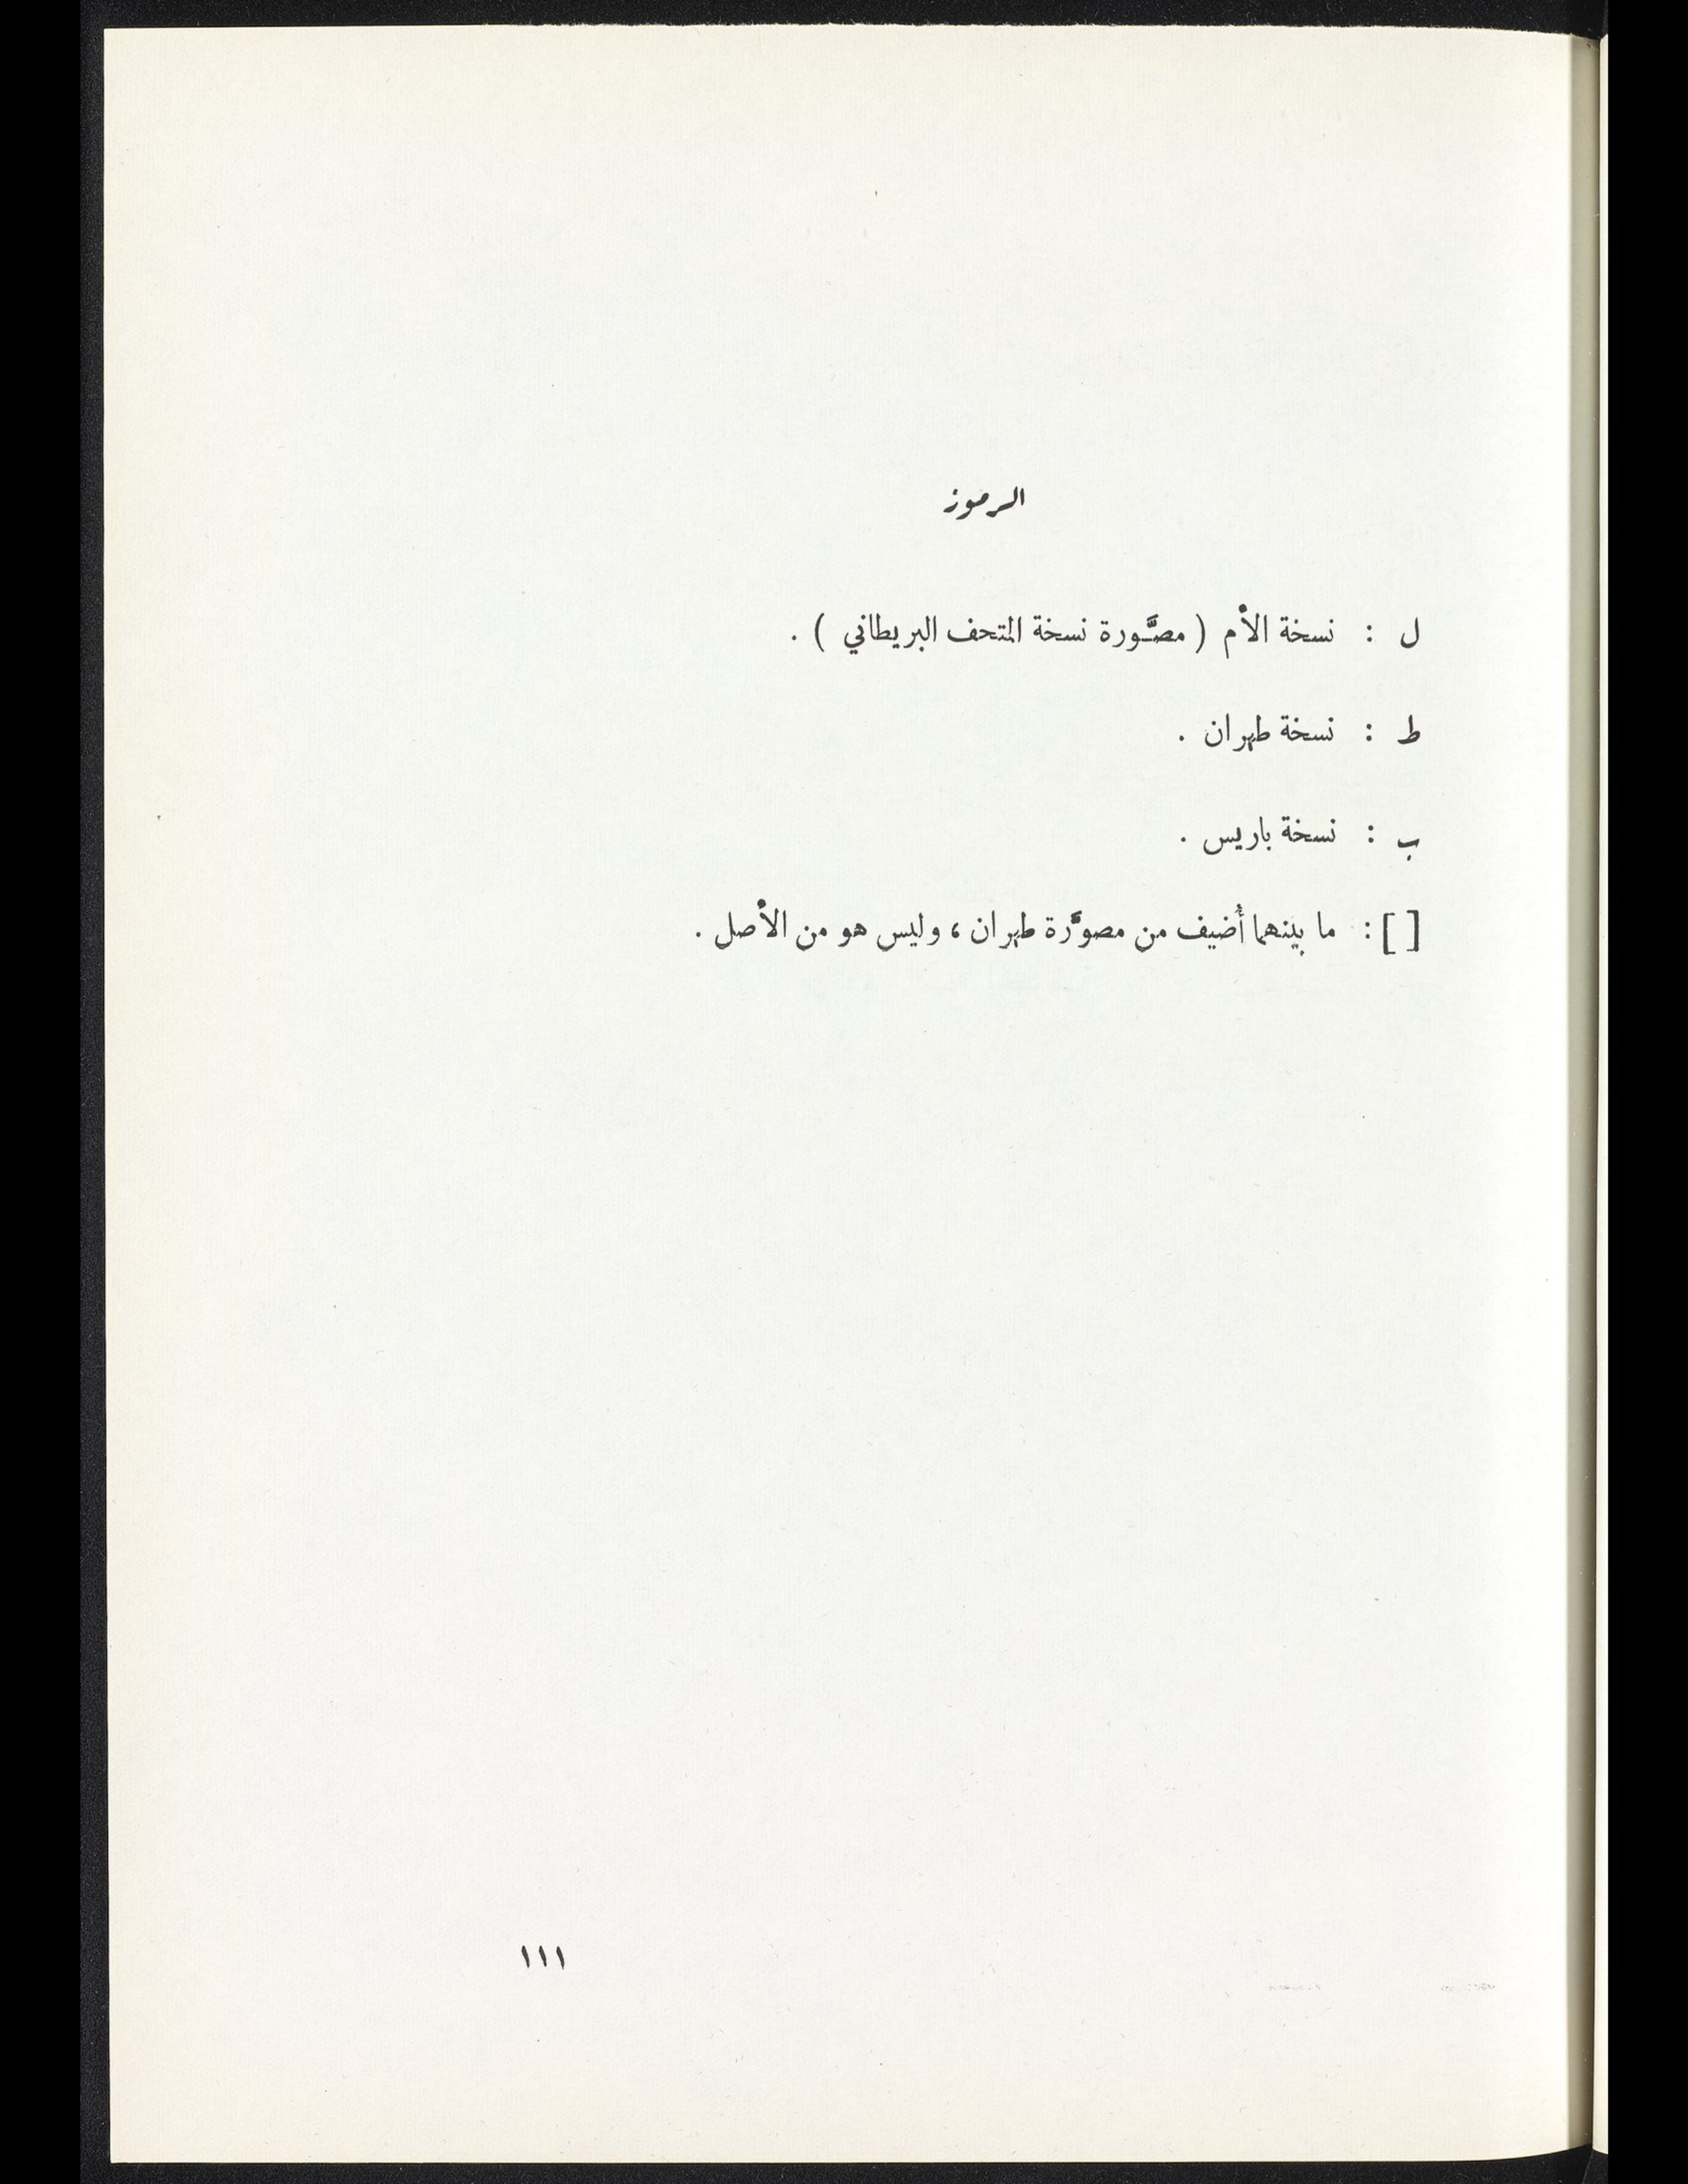 الرموز
ل : نسخة الأم ( مصَّورة نسخة المتحف البريطاني ) .
ط : نسخة طهران .
ب : نسخة باريس .
[ ] : ما بينهما أُضيف من مصوَّرة طهران ، وليس هو من الأصل .
١١١